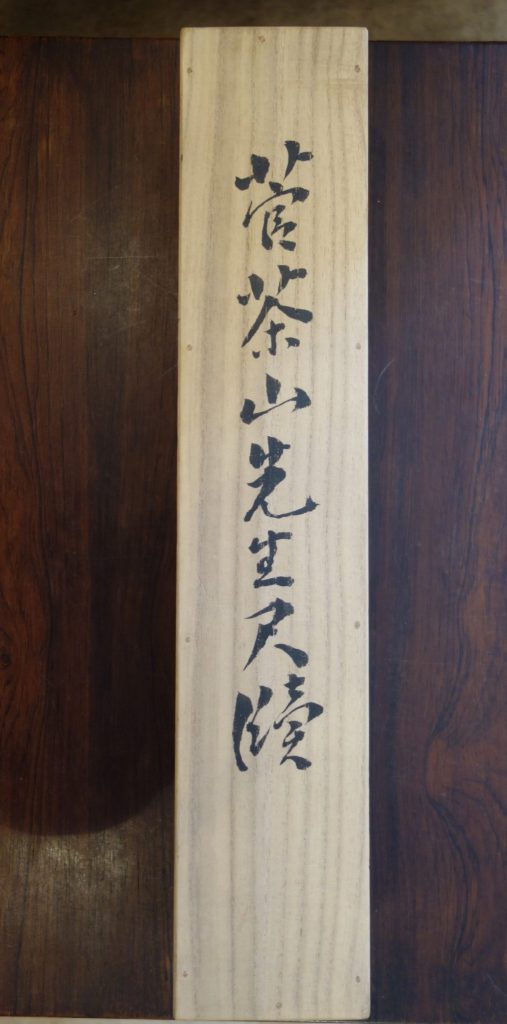 菅茶山先生尺牘